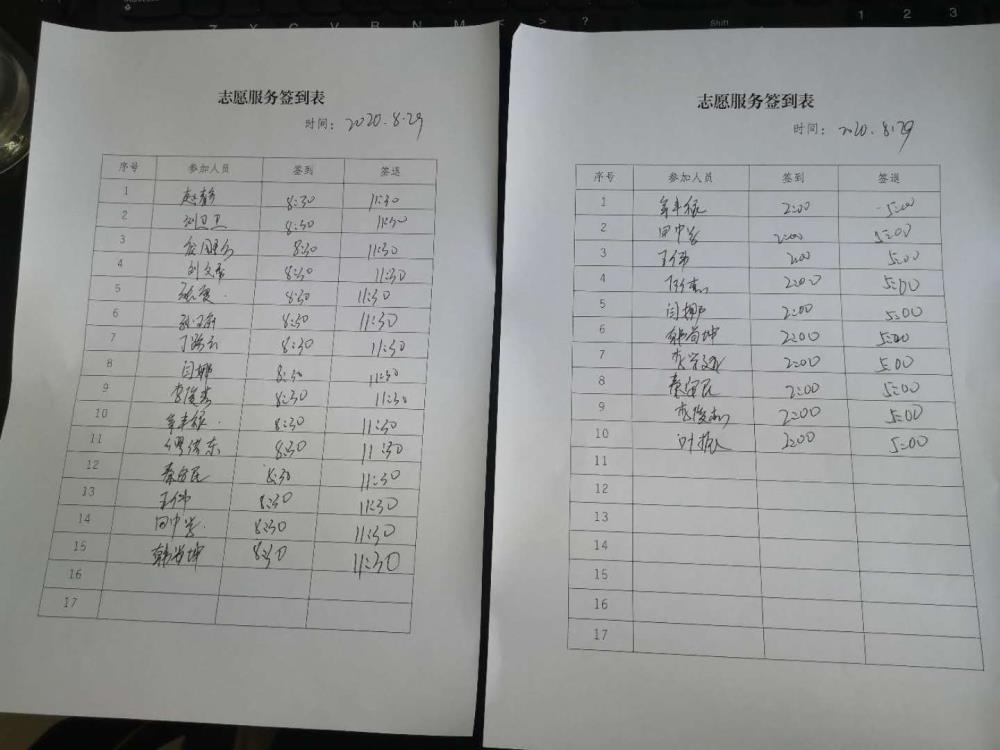 Z X C V B N M < > ?
Shift
1 2 3
志愿服务签到表
时间: 2020.8.29
序号 参加人员 签到 签退
1 赵静 8:30 11:30
2 刘卫卫 8:30 11:30
3 8:30 11:30
4 刘文 8:30 11:30
5 8:30 11:30
6 8:30 11:30
7 8:30 11:30
8 闫娜 8:30 11:30
9 李俊杰 8:30 11:30
10 8:30 11:30
11 8:30 11:30
12 秦富民 8:30 11:30
13 王伟 8:30 11:30
14 田中 8:30 11:30
15 韩尚坤 8:30 11:30
16
17
志愿服务签到表
时间: 2020.8.29
序号 参加人员 签到 签退
1 2:00 5:00
2 田中 2:00 5:00
3 王伟 2:00 5:00
4 2:00 5:00
5 闫娜 2:00 5:00
6 韩尚坤 2:00 5:00
7 李 2:00 5:00
8 秦富民 2:00 5:00
9 李俊杰 2:00 5:00
10 叶振 2:00 5:00
11
12
13
14
15
16
17